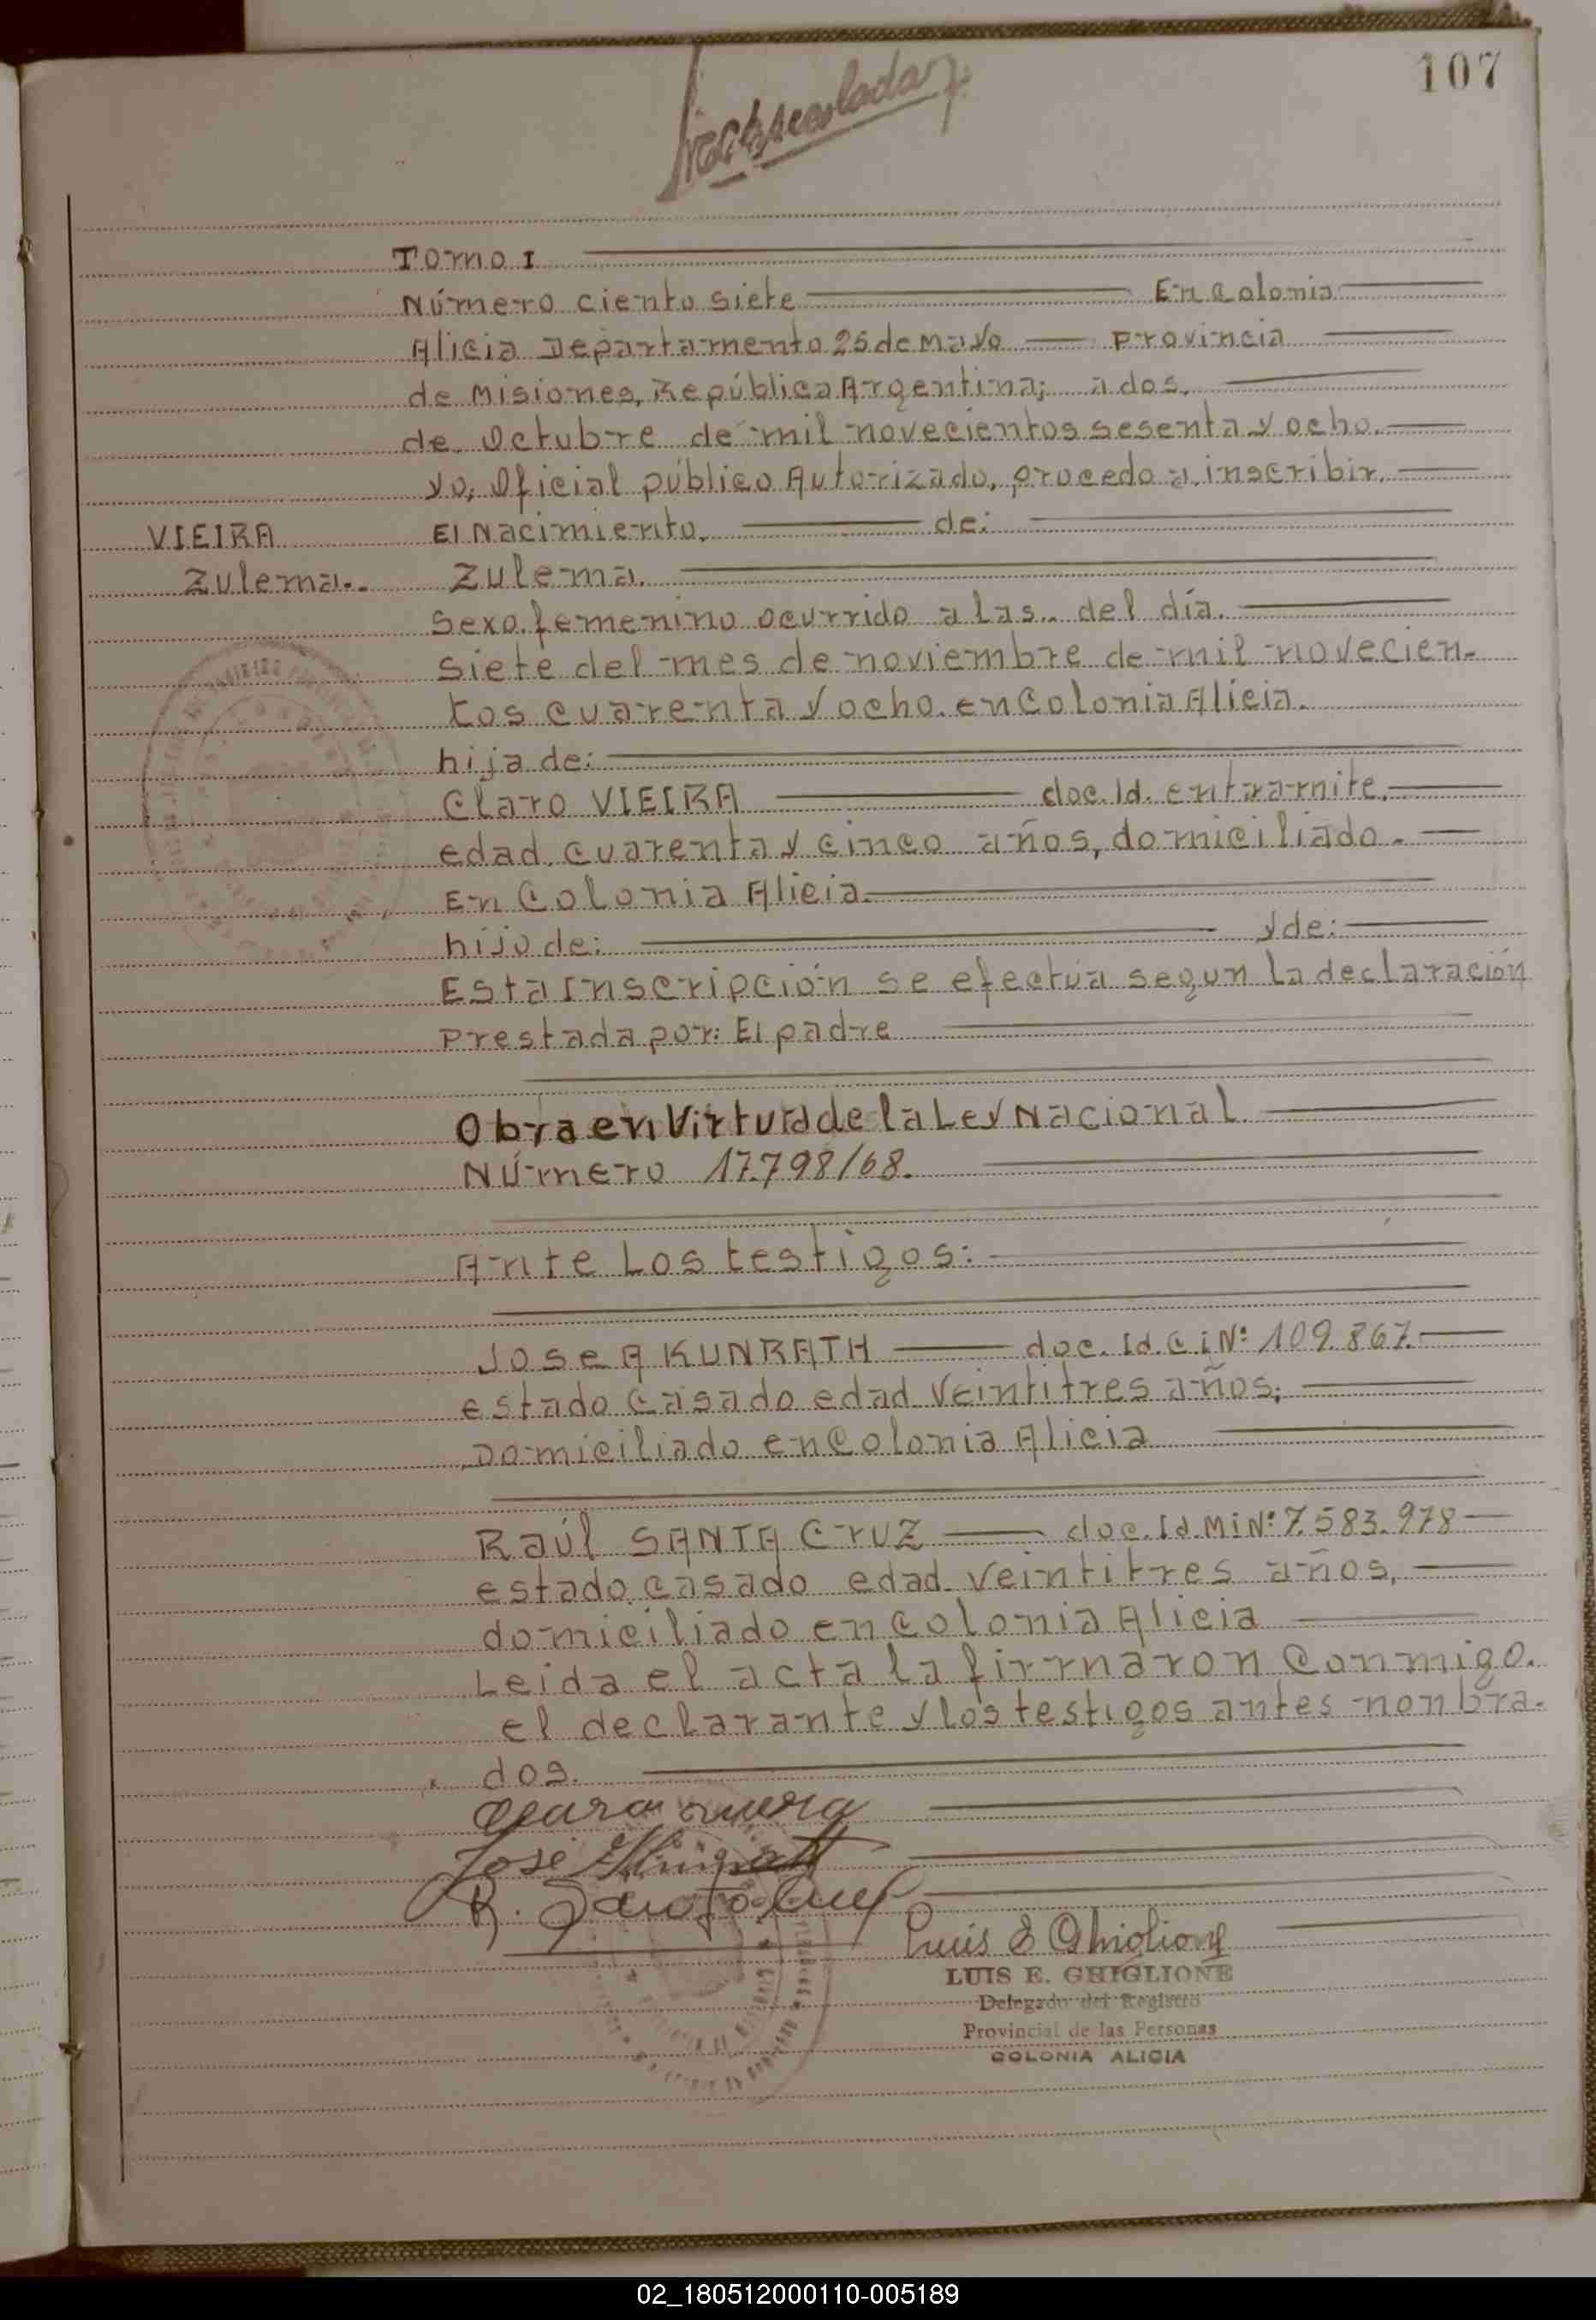 107
Tomo I
Número ciento siete En Colonia
Alicia Departamento 25 de Mayo Provincia
de Misiones, República Argentina; a dos,
de Octubre de mil novecientos sesenta y ocho.
yo, Oficial público Autorizado, procedo a inscribir,
VIEIRA El Nacimiento, de:
Zulema.- Zulema.
Sexo femenino ocurrido a las.. del día.
siete del mes de noviembre de mil novecien-
tos cuarenta y ocho. en Colonia Alicia.
hija de:
Claro VIEIRA doc. Id. entramite,
edad, cuarenta y cinco años, domiciliado.
En Colonia Alicia.
hijo de: y de:
Esta Inscripción se efectúa segun la declaración
Prestada por: El padre
Obra en Virtud de la Ley Nacional
Número 17.798/68.
Ante Los testigos:
Jose A KUNRATH doc. Id. C i Nº 109.867.
estado casado edad veintitres años,
Domiciliado en Colonia Alicia
Raúl SANTA CRUZ doc. Id. M i Nº 7.583.978
estado casado edad veintitres años,
domiciliado en Colonia Alicia
Leida el acta la firmaron Conmigo.
el declarante y los testigos antes nonbra-
dos.
R. Santa Cruz
Luis E Ghiglione
LUIS E. GHIGLIONE
Delegado del Registro
Provincial de las Personas
COLONIA ALICIA
02_180512000110-005189